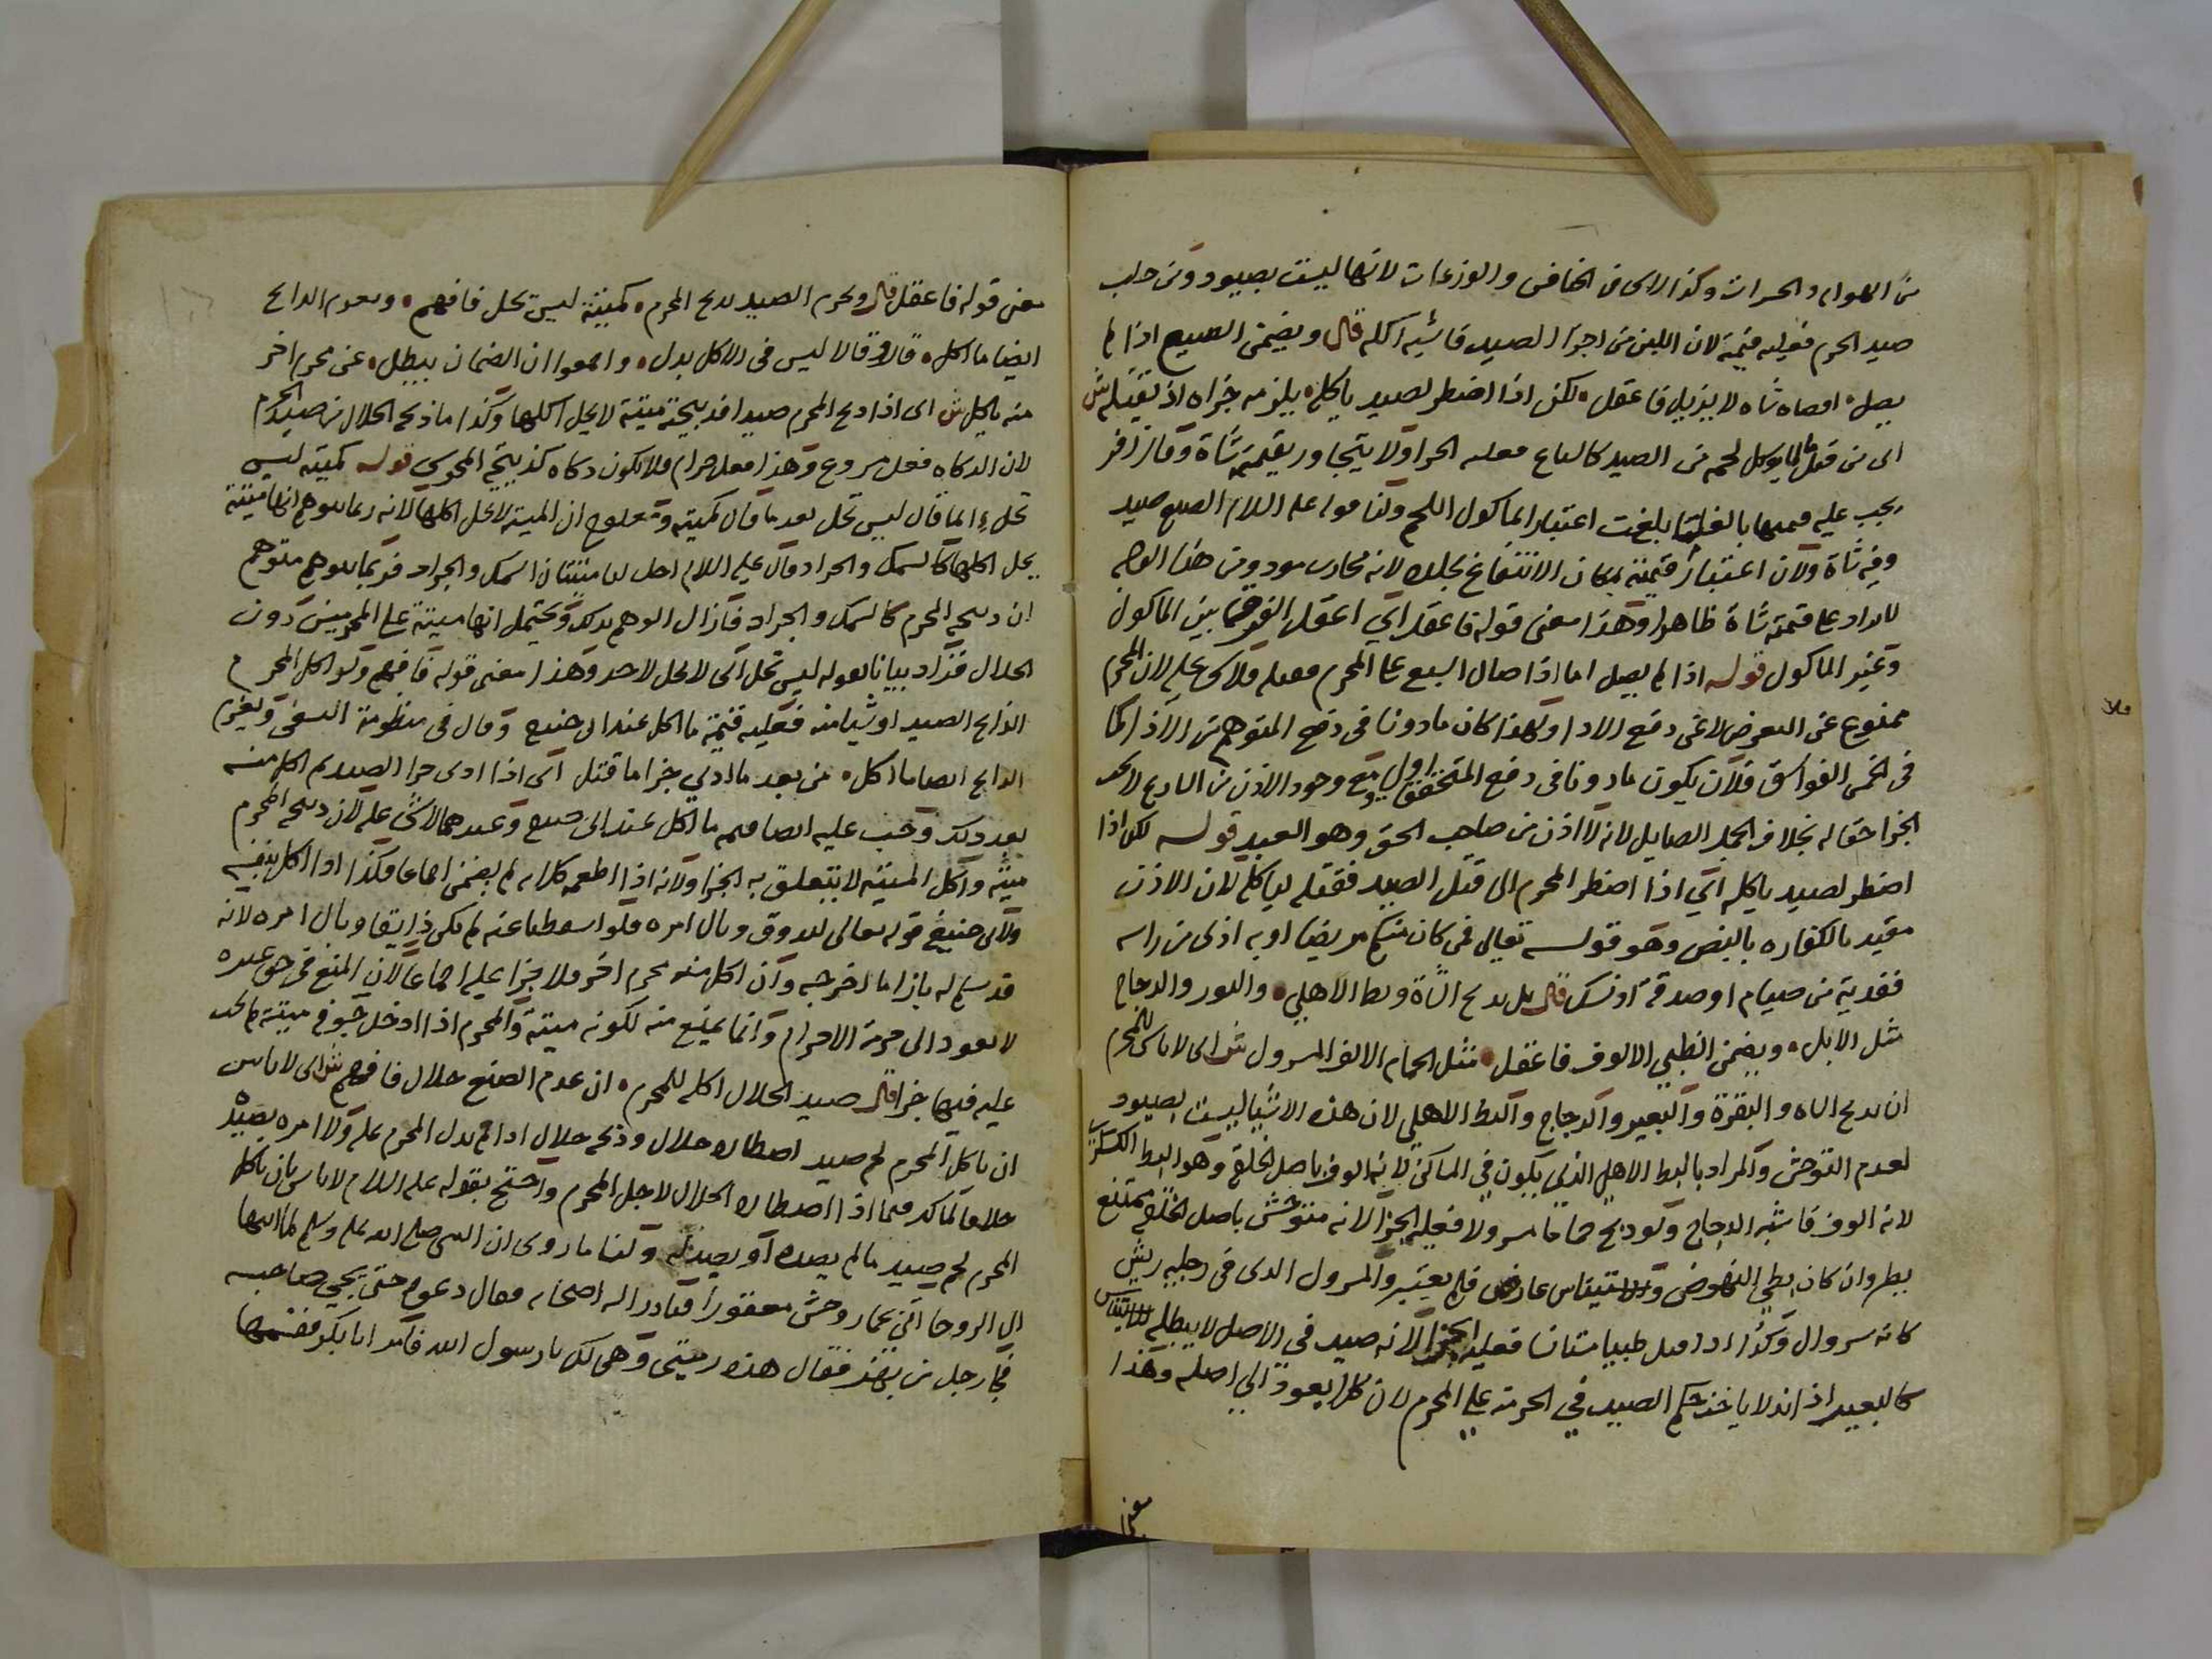 من الهوام والحشرات وكذا لا شي في الخنافس والوزغات لانها ليست بصيود ومن حلب
صيد الحرم فعليه قيمته لان اللبن من اجزا الصيد فاشبه اكله قال ويضمن السبع اذا لم
يصل اقصاه شاه لا يزيل فاعقل لكن اذا اضطر لصيد ياكله يلزمه جزاه اذ يقتله ش
اى من قتل مالا يوكل لحمه من الصيد كالسباع فعليه الجزا ولا يتجاوز بقيمته شاة وقال زفر
يجب عليه قيمتها بالغا ما بلغت اعتبارا بماكول اللحم ولنا قوله عليه السلام الضبع صيد
وفيه شاة ولان اعتبار قيمته لمكان الانتفاع بجلده لانه محارب موذ ومن هذا الوجه
لا يزاد على قيمته شاة ظاهرا وهذا معنى قوله فاعقل اي اعقل الفرق ما بين الماكول
وغير الماكول قوله اذا لم يصل اما اذا صال السبع على المحرم فقتله فلا شي عليه لان المحرم
ممنوع عن التعرض لا عن دفع الاذا ولهذا كان ماذونا في دفع المتوهم من الاذا كما
في الخمس الفواسق فلان يكون ماذونا في دفع المتحقق اولى ومع وجود الاذن من الشارع لا يجب
الجزا حقا له بخلاف الجمل الصايل لانه لا اذن من صاحب الحق وهو العبد قوله لكن اذا
اضطر لصيد ياكله اي اذا اضطر المحرم الى قتل الصيد فقتله لياكله لان الاذن
مقيد بالكفاره بالنص وهو قوله تعالى فمن كان منكم مريضا او به اذى من راسه
ففدية من صيام او صدقة او نسك قال بل يذبح الشاة وبط الاهلي والثور والدجاج
مثل الابل ويضمن الظبي الالوف فاعقل مثل الحمام الالف المسرول ش اى لا باس للمحرم
ان يذبح الشاه والبقرة والبعير والدجاج والبط الاهلي لان هذه الاشيا ليست بصيود
لعدم التوحش والمراد بالبط الاهلي الذي يكون في المساكن لانه الوف باصل الخلقة وهو البط الكسكري
لانه الوف فاشبه الدجاج ولو ذبح حماما مسرولا فعليه الجزا لانه متوحش باصل الخلقة ممتنع
بطيرانه وان كان بطي النهوض والاستيناس عارض فلم يعتبر والمسرول الذي في رجليه ريش
كانه سروال وكذا اذا قتل ظبيا مستانسا فعليه الجزا لانه صيد في الاصل لا يبطله الاستيناس
كالبعير اذا ند لا ياخذ حكم الصيد في الحرمة على المحرم لان كلا يعود الي اصله وهذا
معنى
معنى قوله فاعقل قال ويحرم الصيد بذبح المحرم كميتة ليس تحل فافهم ويغرم الذابح
ايضا ما اكل قال وقالا ليس في الاكل بدل واجمعوا ان الضمان يبطل عن محرم اخر
منه ياكل ش اى اذا ذبح المحرم صيدا فذبيحته ميتة لا يحل اكلها وكذا ما ذبحه الحلال من صيد الحرم
لان الذكاه فعل مشروع وهذا فعل حرام فلا يكون ذكاه كذبيحة المجوسي قوله كميته ليس
تحل انما قال ليس تحل بعد ما قال كميته ومعلوم ان الميته لا يحل اكلها لانه ربما يتوهم انها ميتة
يحل اكلها كالسمك والجراد قال عليه السلام احل لنا ميتتان السمك والجراد فربما يتوهم متوهم
ان ذبيحة المحرم كالسمك والجراد فازال الوهم بذلك ويحتمل انها ميتة على المحرمين دون
الحلال فزاد بيانا بقوله ليس تحل اي لا يحل لاحد وهذا معنى قوله فافهم ولو اكل المحرم
الذابح الصيد او شيا منه فعليه قيمة ما اكل عند ابي حنيفه وقال في منظومة النسفي ويغرم
الذابح ايضا ما اكل من بعد ما ادى جزا ما قتل اى اذا ادى جزا الصيد ثم اكل منه
بعد ذلك وجب عليه ايضا قيمة ما اكل عند ابى حنيفه وعندهما لا شي عليه لان ذبيحة المحرم
ميته واكل الميته لا يتعلق به الجزا ولانه اذا اطعمه كلابه لم يضمن اجماعا فكذا اذا اكل بنفسه
ولابي حنيفة قوله تعالى ليذوق وبال امره فلو اسقطنا عنه لم يكن ذايقا وبال امره لانه
قد سلم له بازا ما اخرجه وان اكل منه محرم اخر فلا جزا عليه اجماعا لان المنع في حق غيره
لا يعود الى حرمة الاحرام وانما يمنع منه لكونه ميتة والمحرم اذا ادخل جوفه ميتة لم يجب
عليه فيها جزا قال صيد الحلال اكله للمحرم ان عدم الصنع حلال فافهم ش اى لا باس
ان ياكل المحرم لحم صيد اصطاده حلال وذبحه حلال اذا لم يدل المحرم عليه ولا امره بصيده
خلافا لمالك فيما اذا اصطاده الحلال لاجل المحرم واحتج بقوله عليه السلام لا باس بان ياكل
المحرم لحم صيد ما لم يصده او يصد له ولنا ما روى ان النبي صلى الله عليه وسلم لما انتهى
الى الروحا اتى بحمار وحش معقورا فتبادر اليه اصحابه فقال دعوه حتى يجي صاحبه
فجا رجل من بهز فقال هذه رميتي وهي لك يا رسول الله فامر ابا بكر فقسمها